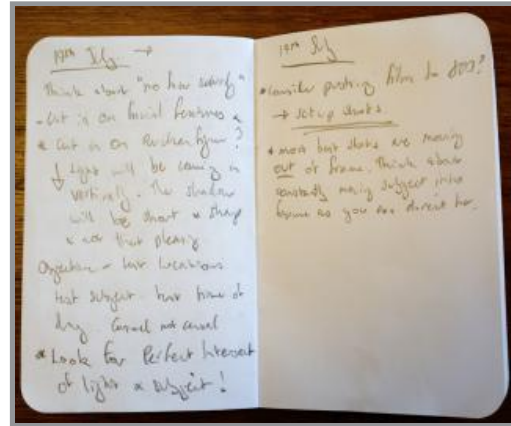 19th July →
Think about "no hour
- Cut in on facial features &
& Cut in on Rucken figure?
↓ Light will be coming in
vertically. The shadow
will be short & sharp
& not that pleasing
Objective - test locations
test subject. test time of
day. Casual not casual
* Look for Perfect Intersect
of light & subject!
19th July
* Consider pushing film to 800?
→ set up shots.
* most best shots are moving
out of frame. Think about
constantly moving subject into
frame as you